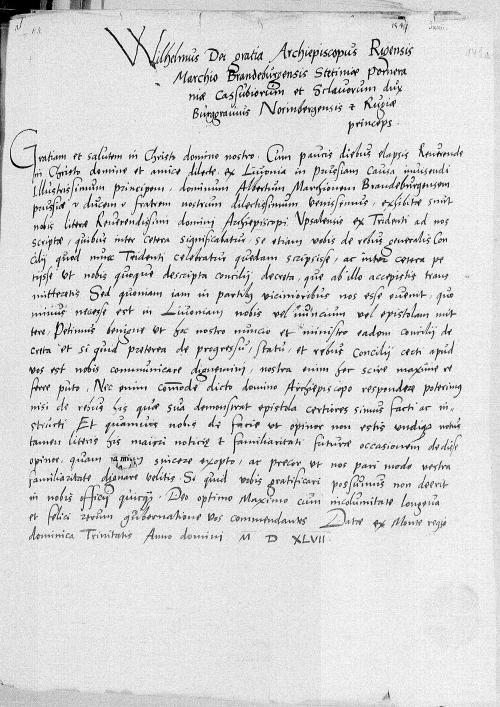 1547
Wilhelmus Dei gratia Archiepiscopus Rigensis
Marchio Brandeburgensis Stetiniae Pomera
niae Cassubiorum et Sclavorum dux
Burgravius Norimbergensis & Rugiae
princeps.
Gratiam et salutem in Christo domino nostro. Cum paucis diebus elapsis Reverende
in Christo domine et amice dilecte, ex Livonia in prussiam causa invisendi
Illustrissimum principem, dominum Albertum Marchionem Brandeburgensem
prussiae ducem fratrem nostrum dilectissimum venissemus, exhibitae sunt
nobis literae Reverendissimi domini Archiepiscopi Upsalensis ex Tridenti ad nos
scriptae, quibus inter cetera significabatur, se etiam vobis de rebus generalis Con
cilij quod nunc Tridenti celebratur quedam scripsisse, ac inter cetera pe
tijsse ut nobis quoque descripta concilij decreta, que ab illo accepistis trans
mitteretis Sed quoniam iam in partibus vicinioribus nos esse , quo
minus necesse est in Livoniam nobis vel nuncium vel epistolam mit
tere, Petimus benigne ut hoc nostro nuncio et ministro eadem concilij de
creta et si quid preterea de progressu, statu, et rebus Concilij certi apud
vos est nobis communicare dignemini, nostra enim hec scire maxime re
ferre puto, Nec enim commode dicto domino Archiepiscopo respondere poterimus
nisi de rebus his quae sua demonstrat epistola certiores simus facti ac in=
structi Et quamvis nobis de facie ut opinor non estis notus
tamen literis his maioris notitie et familiaritati future occasionem dedisse
opinor, quam sincere exopto, ac precor ut nos pari modo vestra
familiaritate dignare velitis. Si quid vobis gratificari possumus non deerit
in nobis officij quicquam. Deo optimo Maximo cum incolumitate longeva
et felici rerum gubernatione vos commendantes Datae ex Monte regio
dominica Trinitatis Anno domini M D XLVII